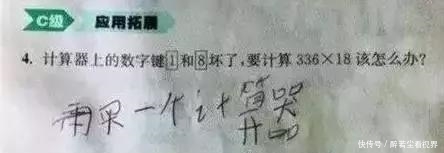 C级 应用拓展
4. 计算器上的数字键1和8坏了,要计算 336×18 该怎么办?
再买一个计算器
快传号/醉客尘看视界